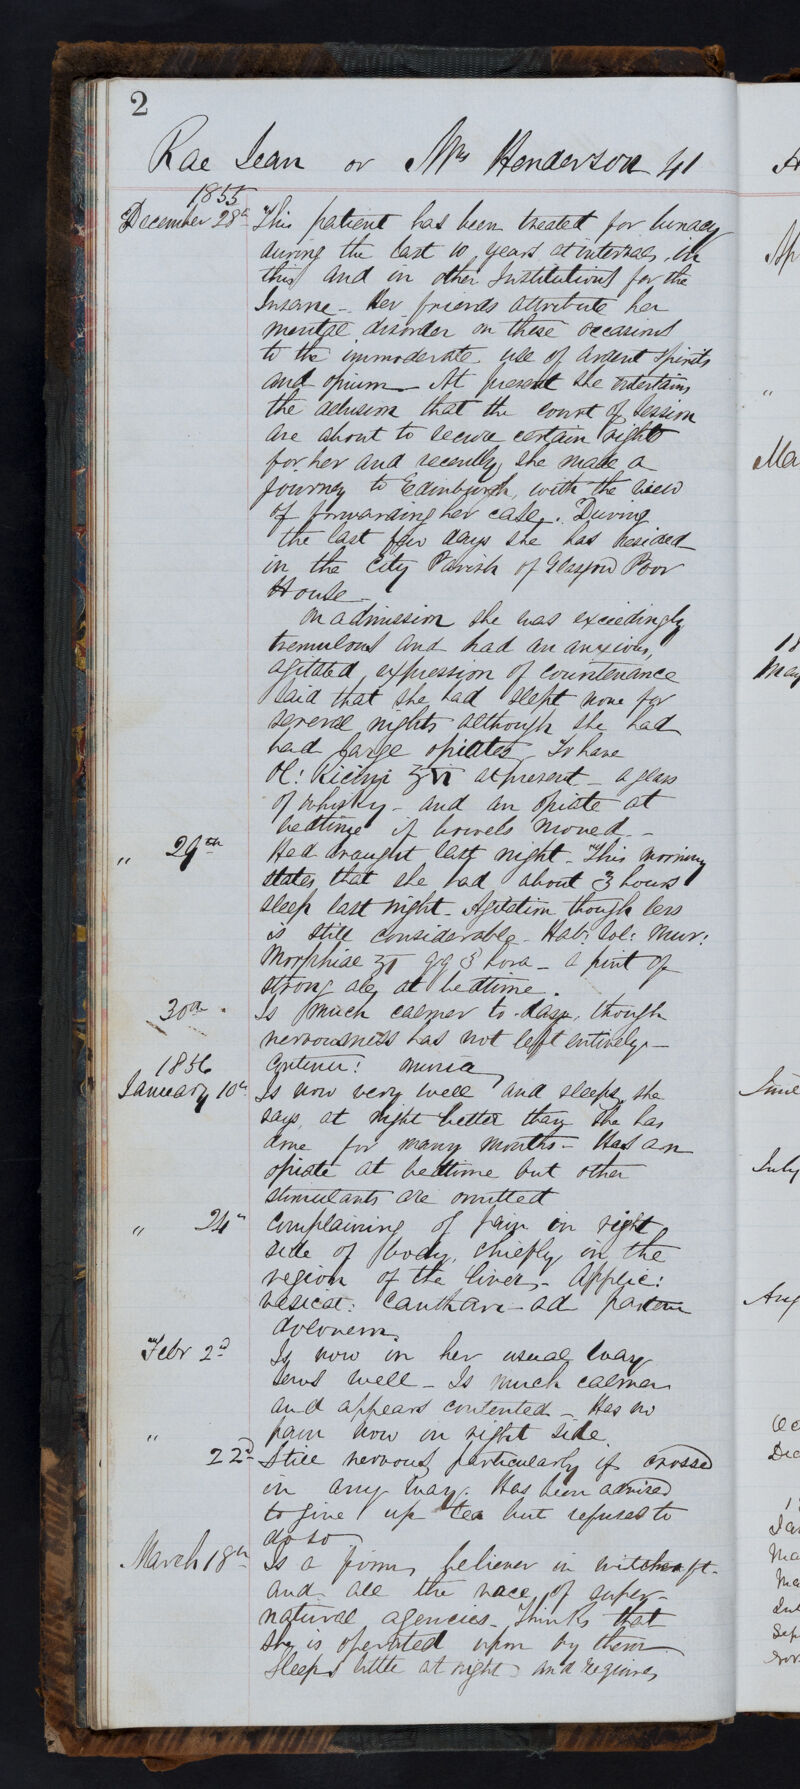 2
Rae Jean or Mrs Henderson 41
1855
December 28th This patient has been treated for lunacy
during the last 10 years at intervals in
this and in other Institutions for the
Insane - Her friends attribute her
mental disorder on these occasions
to the immoderate use of ardent spirits
and opium - At present she entertains
the delusion that the court of Session
are about to secure certain rights
for her and recently she made a
journey to Edinburgh, with the view
of forwarding her case. During
the last few days she has resided
in the City Parish of Glasgow Poor
House -
On admission she was exceedingly
tremulous and had an anxious,
agitated expression of countenance
said that she had slept none for
several nights although she had
had large opiates To have
Ol: Ricini ʒvi at present - a glass
of whisky - and an opiate at
bedtime if bowels moved -
" 29th Had draught last night - This morning
states that she had about 3 hours
sleep last night - Agitation though less
is still considerable - Hab: Sol: Mur:
Morphiae ʒi qq 3 hora - a pint of
strong ale at bedtime.
30th Is much calmer to-day, though
nervousness has not left entirely -
1856 Contenu:
January 10th Is now very well and sleeps, she
says, at night better than she has
done for many months - Has an
opiate at bedtime but other
stimulants are omitted
" 24th Complaining of pain in right
side of body, chiefly in the
region of the liver - Applic:
vesicat: Canthari - ad partem
dolorem.
Febr 2d Is now in her usual way
Sews well - Is much calmer
and appears contented - Has no
pain now in right side
" 22d Still nervous, particularly if crossed
in any way. Has been advised
to give up tea but refuses to
do so
March 18th Is a firm believer in witchcraft -
and all the race of super-
natural agencies - Thinks that
she is operated upon by them
Sleeps little at night and requires
Ap
"
Ma
18
May
June
July
Aug
Oc
Dec
1
Jan
Ma
Ma
Jul
Sep
Nov